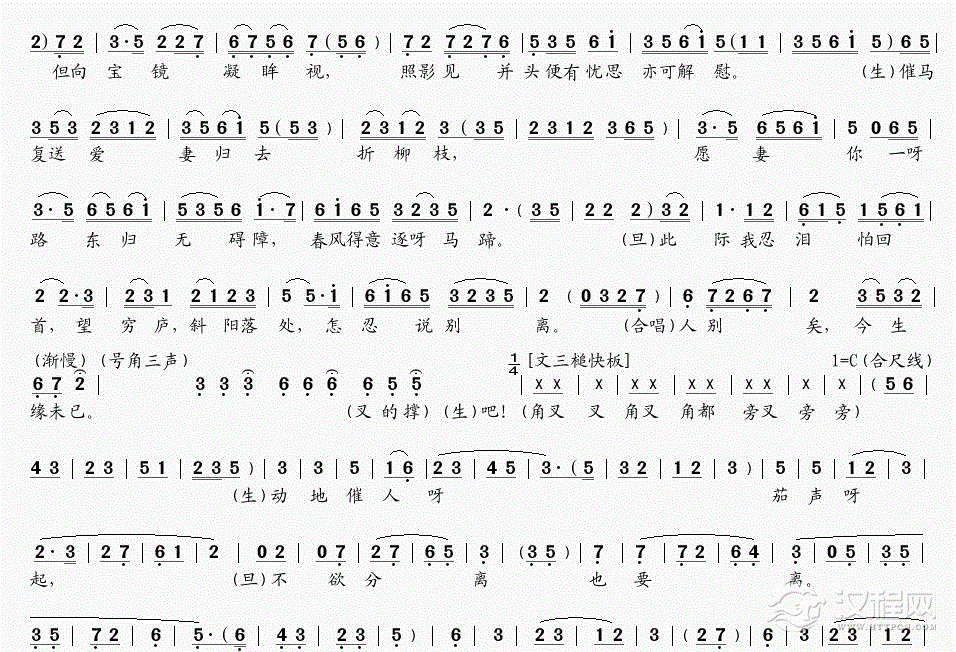 2) 7 2 | 3·5 2 2 7 | 6 7 5 6 7 (5 6) | 7 2 7 2 7 6 | 5 3 5 6 i | 3 5 6 i 5 (1 1 | 3 5 6 i 5) 6 5 |
但向 宝 镜 凝 眸 视, 照影见 并头便有忧思亦可解 慰。 (生)催马
3 5 3 2 3 1 2 | 3 5 6 i 5 (5 3) | 2 3 1 2 3 (3 5 | 2 3 1 2 3 6 5) | 3·5 6 5 6 i | 5 0 6 5 |
复送 爱 妻 归 去 折 柳 枝, 愿 妻 你 一呀
3·5 6 5 6 i | 5 3 5 6 i·7 | 6 i 6 5 3 2 3 5 | 2·(3 5 | 2 2 2) 3 2 | 1·1 2 | 6 1 5 1 5 6 1 |
路 东 归 无 碍 障, 春风得意 逐呀 马 蹄。 (旦)此 际 我忍 泪 怕回
2 2·3 | 2 3 1 2 1 2 3 | 5 5·i | 6 i 6 5 3 2 3 5 | 2 (0 3 2 7) | 6 7 2 6 7 | 2 3 5 3 2 |
首, 望 穷 庐, 斜 阳落 处, 怎 忍 说 别 离。 (合唱)人 别 矣, 今 生
(渐慢) (号角三声) 1/4 [文三槌快板] 1=C (合尺线)
6 7 2 | 3 3 3 6 6 6 6 5 5 | x x | x x | x x | x x | x x | x x | (5 6 |
缘未已。 (叉 的 撑) (生)吧! (角叉 叉 角叉 角都 旁叉 旁 旁)
4 3 | 2 3 | 5 1 | 2 3 5) | 3 | 3 | 5 | 1 6 | 2 3 | 4 5 | 3·(5 | 3 2 | 1 2 | 3) | 5 | 5 | 1 2 | 3 |
(生)动 地 催 人 呀 茄 声 呀
2·3 | 2 7 | 6 1 | 2 | 0 2 | 0 7 | 2 7 | 6 5 | 3 | (3 5) | 7 | 7 | 7 2 | 6 4 | 3 | 0 5 | 3 5 |
起, (旦)不 欲 分 离 也 要 离。
3 5 | 7 2 | 6 | 5·(6 | 4 3 | 2 3 | 5) | 6 | 3 | 2 3 | 1 2 | (2 7) | 6 | 3 | 2 3 | 1 2
汉程网
WWW.HTTPCN.COM